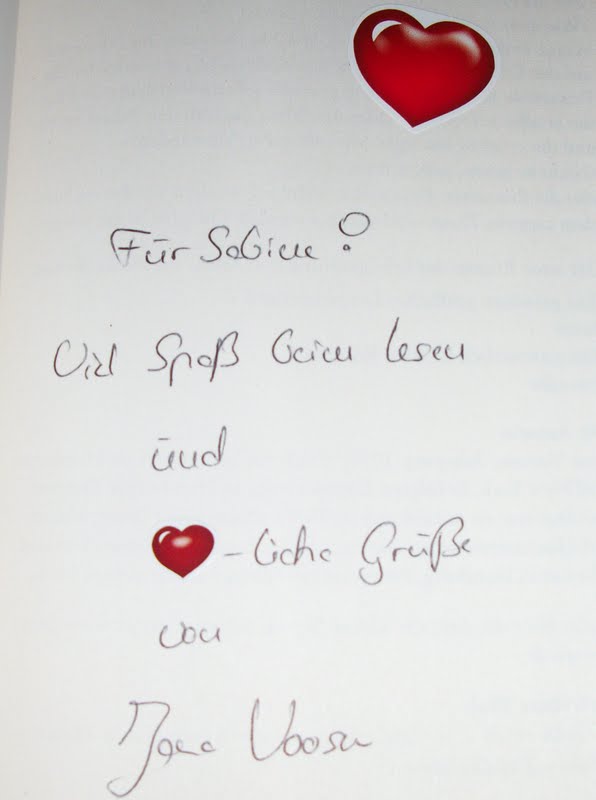 Für Sabine!
Viel Spaß beim Lesen
und
❤-liche Grüße
von
Jana Voosen